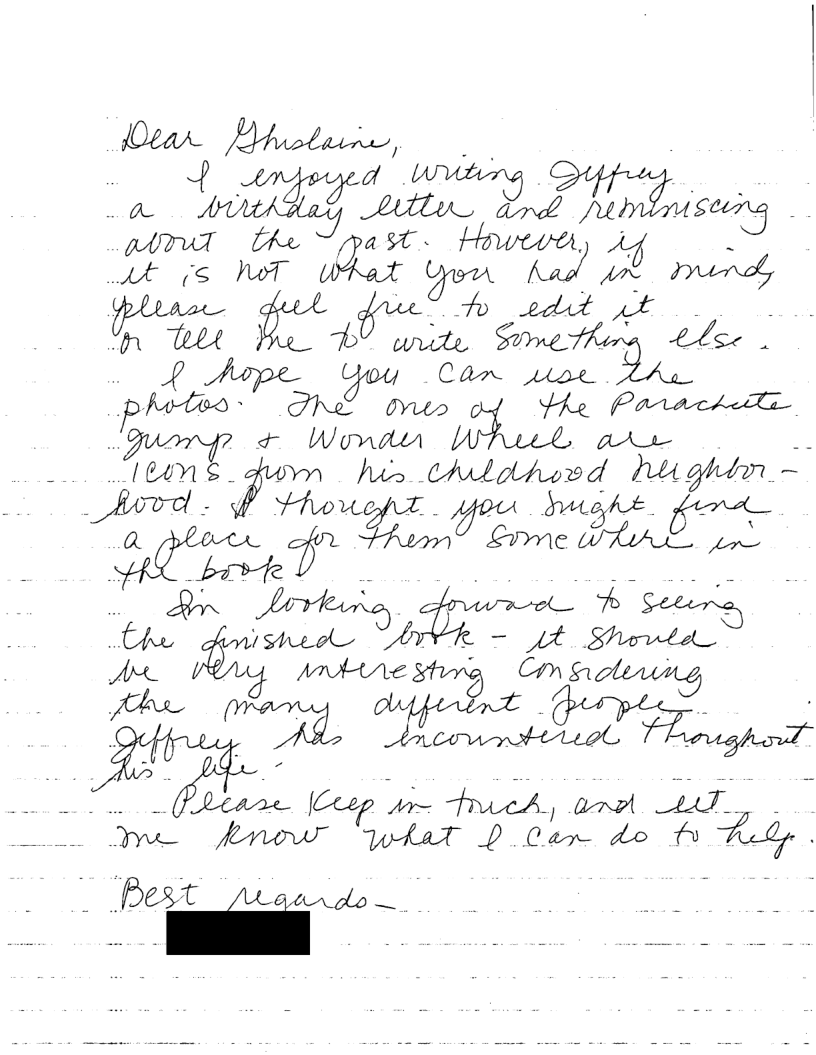 Dear Ghislaine,
I enjoyed writing Jeffrey
a birthday letter and reminiscing
about the past. However, if
it is not what you had in mind,
please feel free to edit it
or tell me to write something else.
I hope you can use the
photos. The ones of the Parachute
Jump + Wonder Wheel are
icons from his childhood neighbor-
hood. I thought you might find
a place for them somewhere in
the book!
I'm looking forward to seeing
the finished book - it should
be very interesting considering
the many different people
Jeffrey has encountered throughout
his life.
Please keep in touch, and let
me know what I can do to help.
Best regards-